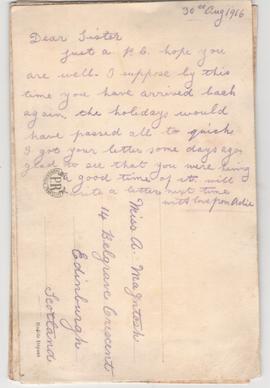 30th Aug 1916
Dear Sister
Just a P.C. hope you
are well. I suppose by this
time you have arrived back
again, the holidays would
have passed all to quick
I got your letter some days ago
glad to see that you were having
good time of it. will
write a letter next time
with love from
Miss A. MacIntosh
14 Belgrave Crescent
Edinburgh
Scotland